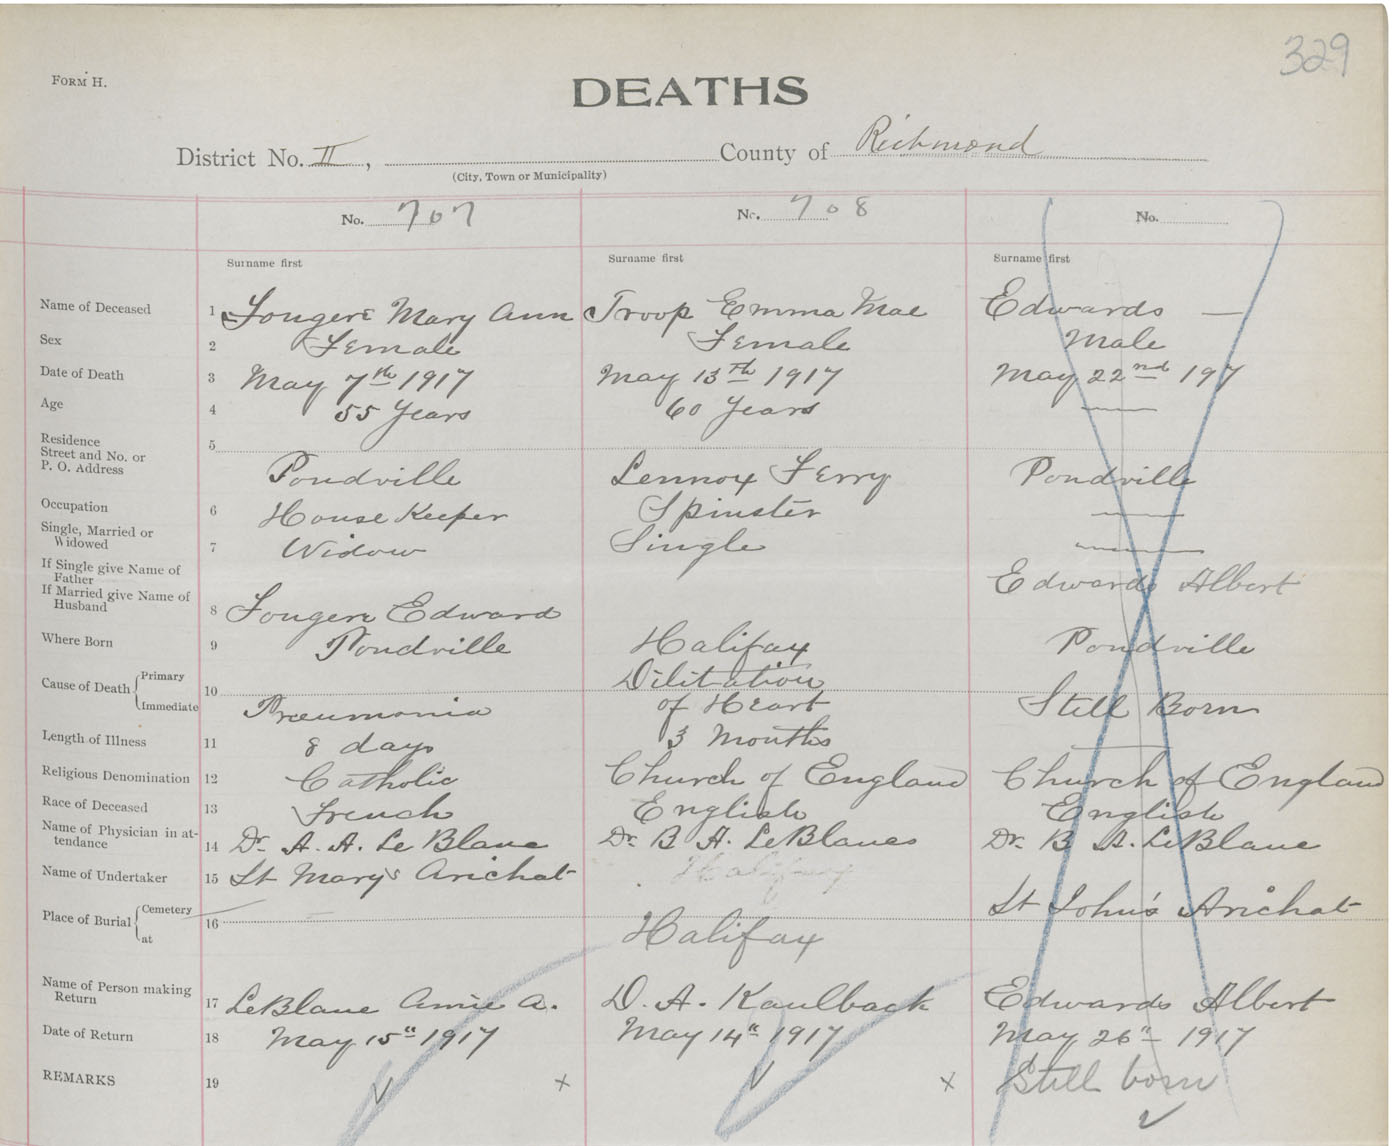 329
FORM H.
DEATHS
District No. II , County of Richmond
(City, Town or Municipality)
No. 707 No. 708 No.
Surname first Surname first Surname first
Name of Deceased 1 Fougere Mary Ann Troop Emma Mae Edwards —
Sex 2 Female Female Male
Date of Death 3 May 7th 1917 May 13th 1917 May 22nd 197
Age 4 55 Years 60 Years —
Residence 5
Street and No. or
P. O. Address Pondville Lennox Ferry Pondville
Occupation 6 House Keeper Spinster —
Single, Married or
Widowed 7 Widow Single —
If Single give Name of
Father Edwards Albert
If Married give Name of
Husband 8 Fougere Edward
Where Born 9 Pondville Halifax Pondville
Cause of Death { Primary Dilitation
Immediate 10 Pneumonia of Heart Still Born
Length of Illness 11 8 days 3 Months —
Religious Denomination 12 Catholic Church of England Church of England
Race of Deceased 13 French English English
Name of Physician in at-
tendance 14 Dr. A. A. Le Blanc Dr. B A. LeBlanc Dr. B A. LeBlanc
Name of Undertaker 15 St Mary's Arichat Halifax
Place of Burial { Cemetery 16 St John's Arichat
at Halifax
Name of Person making
Return 17 LeBlanc Annie A. D. A. Kaulback Edwards Albert
Date of Return 18 May 15th 1917 May 14th 1917 May 26th 1917
REMARKS 19 ✓ x ✓ x Still born
✓